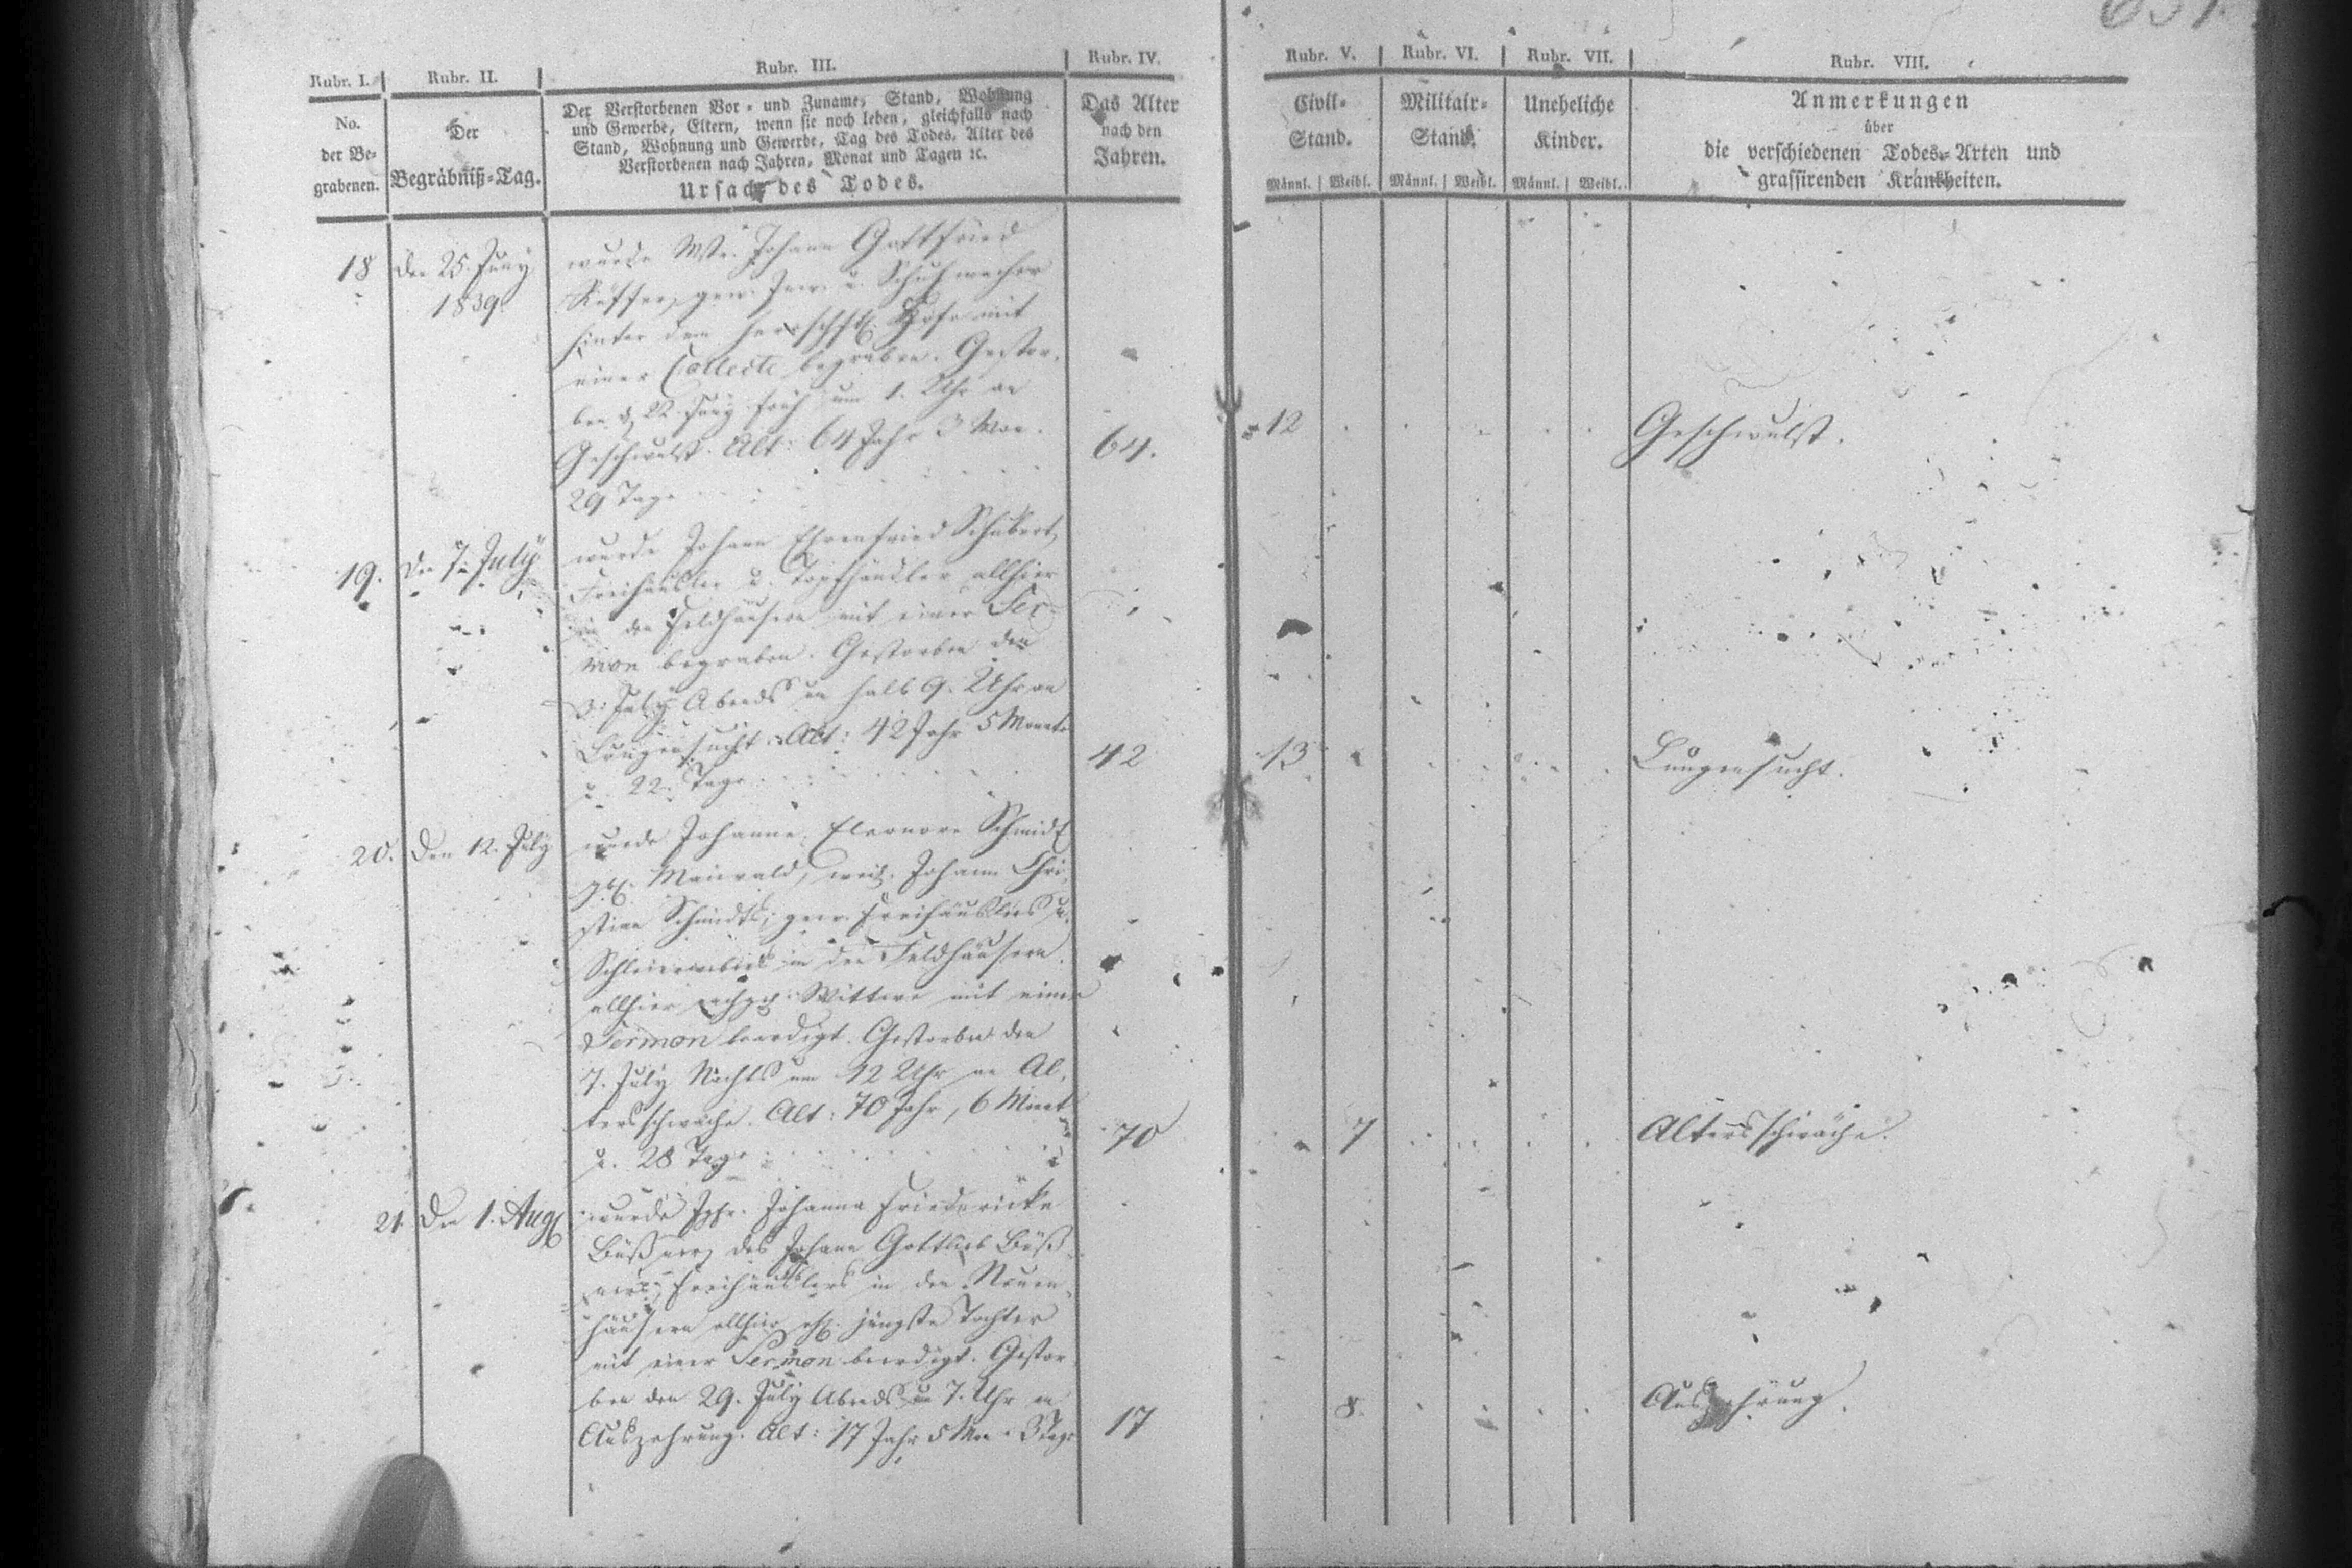 Rubr. I.
Rubr. II.
Rubr. III.
Rubr. IV.
Rubr. V.
Rubr. VI.
Rubr. VII.
Rubr. VIII.
No.
der Be-
grabenen.
Der
Begräbniß-Tag.
Der Verstorbenen Vor- und Zuname, Stand, Wohnung
und Gewerbe, Eltern, wenn sie noch leben, gleichfalls nach
Stand, Wohnung und Gewerbe, Tag des Todes, Alter des
Verstorbenen nach Jahren, Monat und Tagen ꝛc.
Ursach des Todes.
Das Alter
nach den
Jahren.
Civil-
Stand.
Männl. Weibl.
Militair-
Stand.
Männl. Weibl.
Uneheliche
Kinder.
Männl. Weibl.
Anmerkungen
über
die verschiedenen Todes-Arten und
grassirenden Krankheiten.
18
den 25. Juny
1839
wurde Mstr. Johann Gottfried
gew. Inw. u. Schuhmacher
hinter dem herrschftl. Hofe mit
einer Collecte begraben. Gestor-
ben d. 22. Juny früh um 1. Uhr an
Geschwulst. Alt: 64 Jahr 3 Mon.
29 Tage
64.
12
Geschwulst.
19.
den 7. July
wurde Johann Ehrenfried Schubert,
Freihäusler u. Topfhändler allhier
in den Feldhäusern mit einer Ser-
mon begraben. Gestorben den
3. July Abends um halb 9. Uhr an
Lungensucht. Alt: 42 Jahr 5 Monate
u. 22. Tage
42
13
Lungensucht.
20.
Den 12. July
wurde Johanne Eleonore Schmidt
geb. Maiwald, weil. Johann Chri-
stian Schmidts, gew. Freihäuslers u.
in den Feldhäusern
allhier Wittwe mit einer
Sermon beerdigt. Gestorben den
7. July Nachts um 12 Uhr an Al-
tersschwäche. Alt: 70 Jahr, 6 Monat
u. 28 Tage
70
7
Altersschwäche.
21.
Den 1. Aug.
wurde Jgfr. Johanna Friedericke
des Johann Gottlieb
Freihäuslers in den Neuen-
häusern allhier ehl. jüngste Tochter
mit einer Sermon beerdigt. Gestor-
ben den 29. July Abends um 7. Uhr an
Auszehrung. Alt: 17 Jahr 5 Mon. 3 Tage
17
8.
Auszehrung.